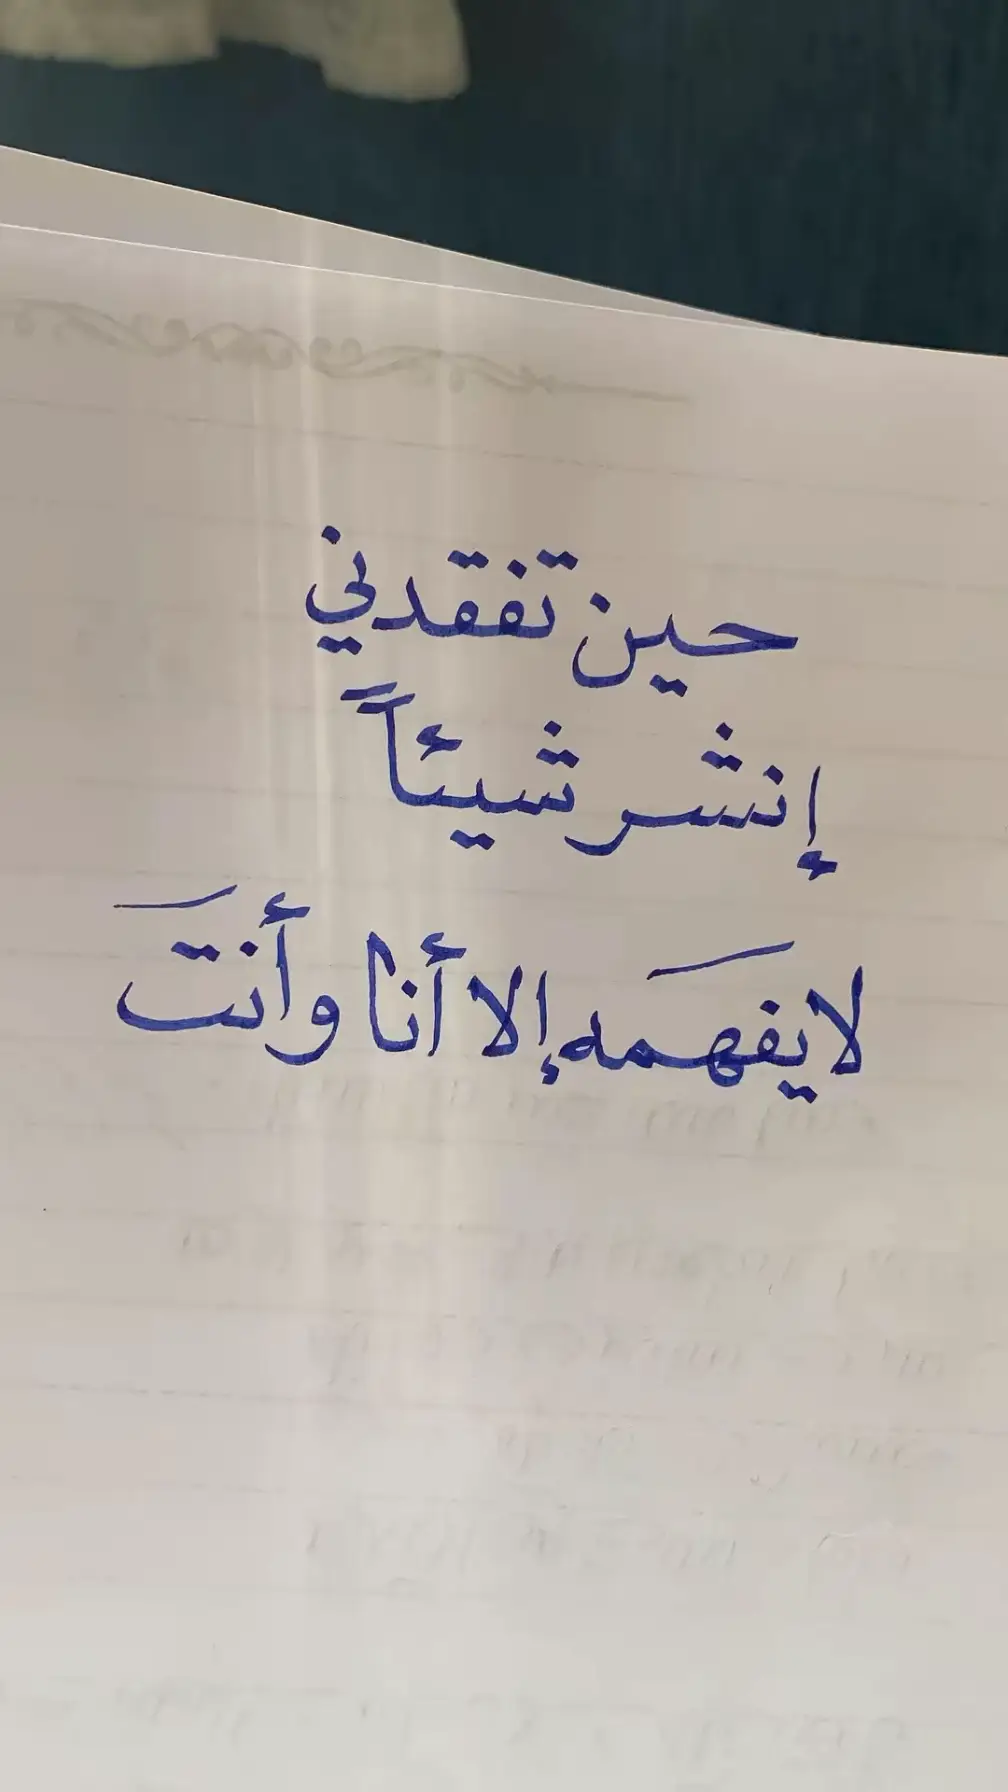 حين تفقدني
إنشر شيئاً
لا يفهمَه إلا أنا وأنتَ